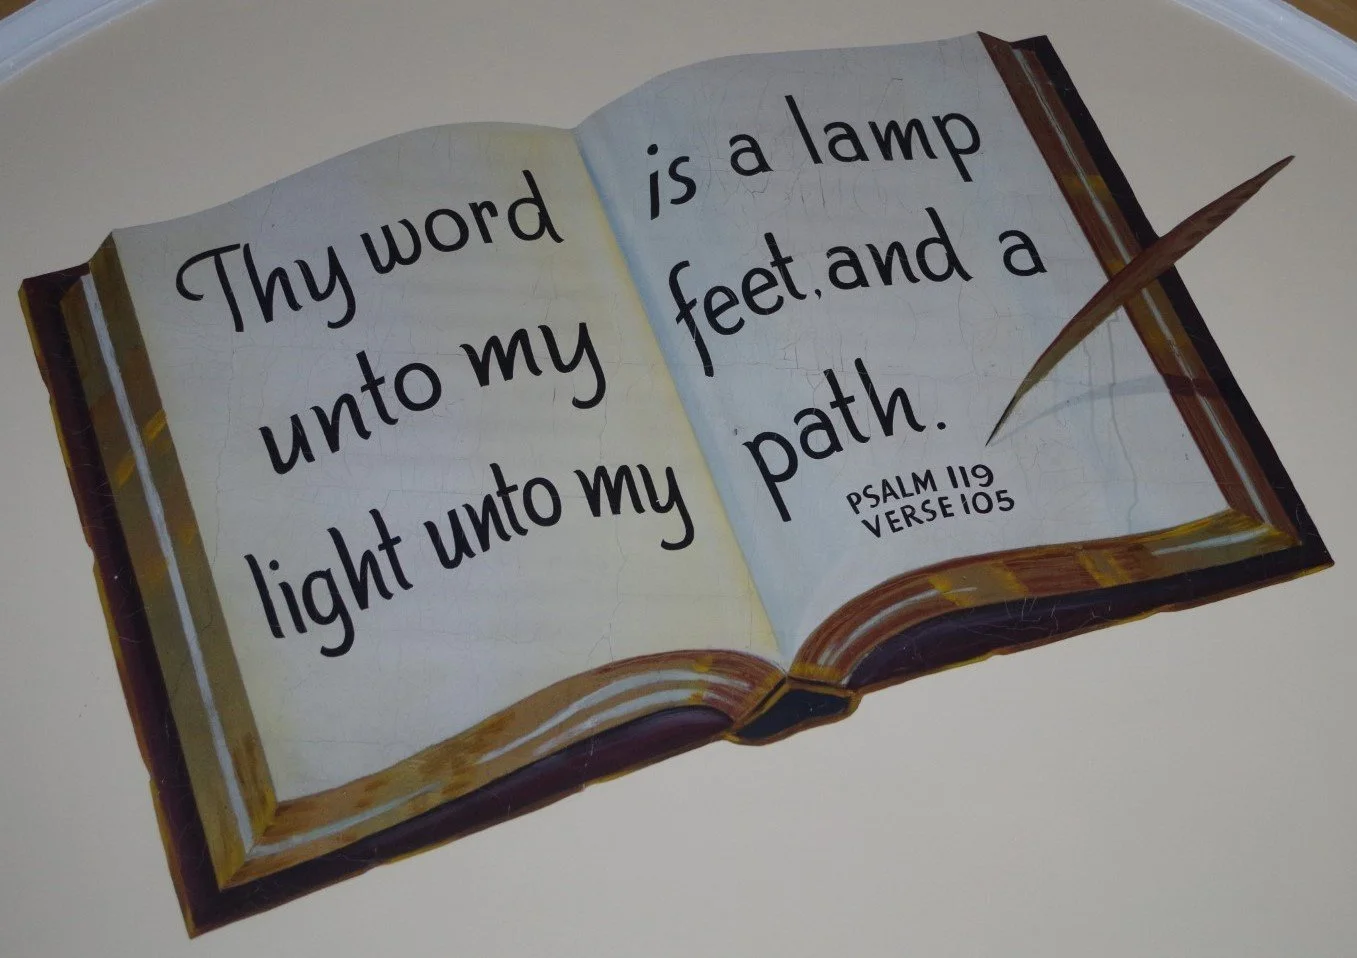 Thy word is a lamp
unto my feet, and a
light unto my path.
PSALM 119
VERSE 105